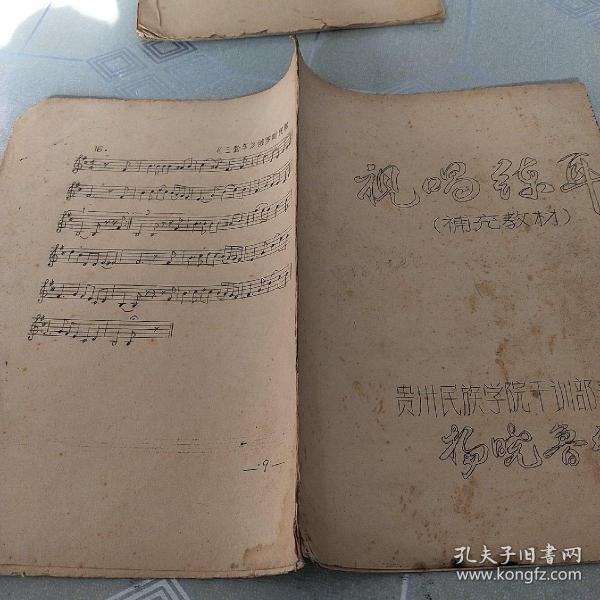 16.
—9—
视唱练耳
(補充教材)
贵州民族学院干训部
孔夫子旧书网
www.kongfz.com